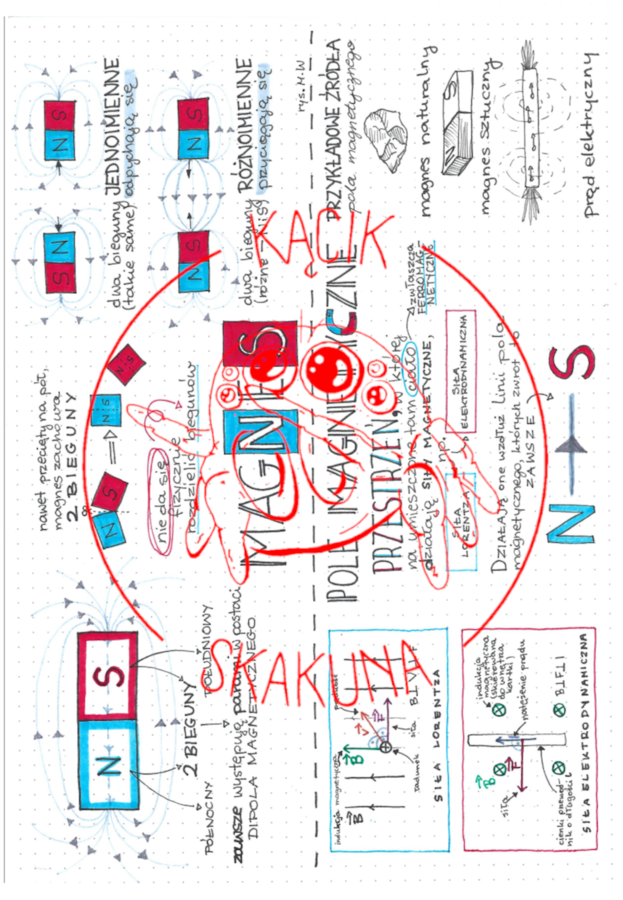 N S
2 BIEGUNY
PÓŁNOCNY
POŁUDNIOWY
zawsze występują parami w postaci
DIPOLA MAGNETYCZNEGO
nawet przecięty na pół,
magnes zachowa
2 BIEGUNY
N S
N S
N S
nie da się
fizycznie
rozdzielić biegunów
MAGNES
S N
N S
dwa bieguny JEDNOIMIENNE
(takie same) odpychają się
N S
N S
dwa bieguny RÓŻNOIMIENNE
(różne - N i S) przyciągają się
rys. M.W
POLE MAGNETYCZNE
PRZESTRZEŃ, w której
na umieszczone tam ciało
działają SIŁY MAGNETYCZNE,
zwłaszcza
FERROMAG-
NETYCZNE
np.
SIŁA
LORENTZA
SIŁA
ELEKTRODYNAMICZNA
DZIAŁAJĄ one wzdłuż linii pola
magnetycznego, których zwrot to
ZAWSZE
N S
PRZYKŁADOWE ŹRÓDŁA
pola magnetycznego
magnes naturalny
N S
magnes sztuczny
prąd elektryczny
indukcja magnetyczna
B
B
V
F
prędkość
siła
ładunek
B⊥V⊥F
SIŁA LORENTZA
indukcja
magnetyczna
(skierowana
do wnętrza
kartki)
natężenie prądu
B
F
siła
cienki przewod-
nik o długości l
B⊥F⊥I
SIŁA ELEKTRODYNAMICZNA
KĄCIK
SKAKUNA